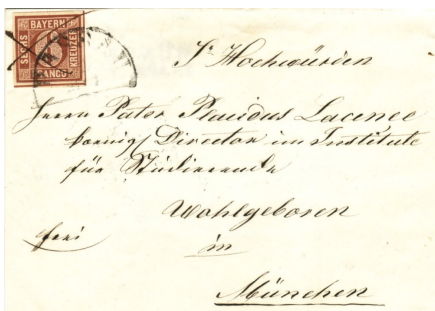 BAYERN
SECHS
KREUZER
FRANCO
Sr Hochwürden
Herrn Pater Plaudus Lacence
koenigl Director im Institute
für Studierende
Wohlgeboren
frei
in
München